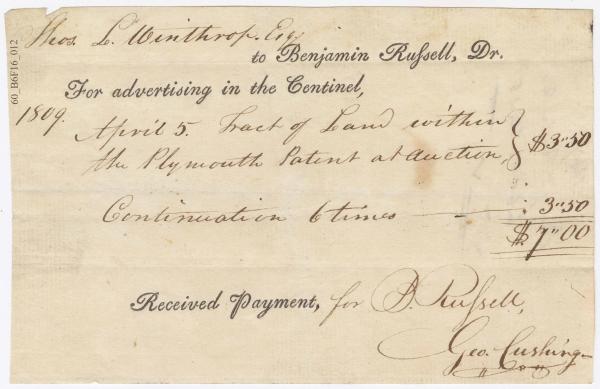 60_B6F16_012
Thos. L. Winthrop. Esq.
to Benjamin Russell, Dr.
For advertising in the Centinel,
1809.
April 5. Tract of Land within
the Plymouth Patent at auction, } $3"50
Continuation 6 times 3"50
$7"00
Received Payment, for B. Russell,
Geo. Cushing